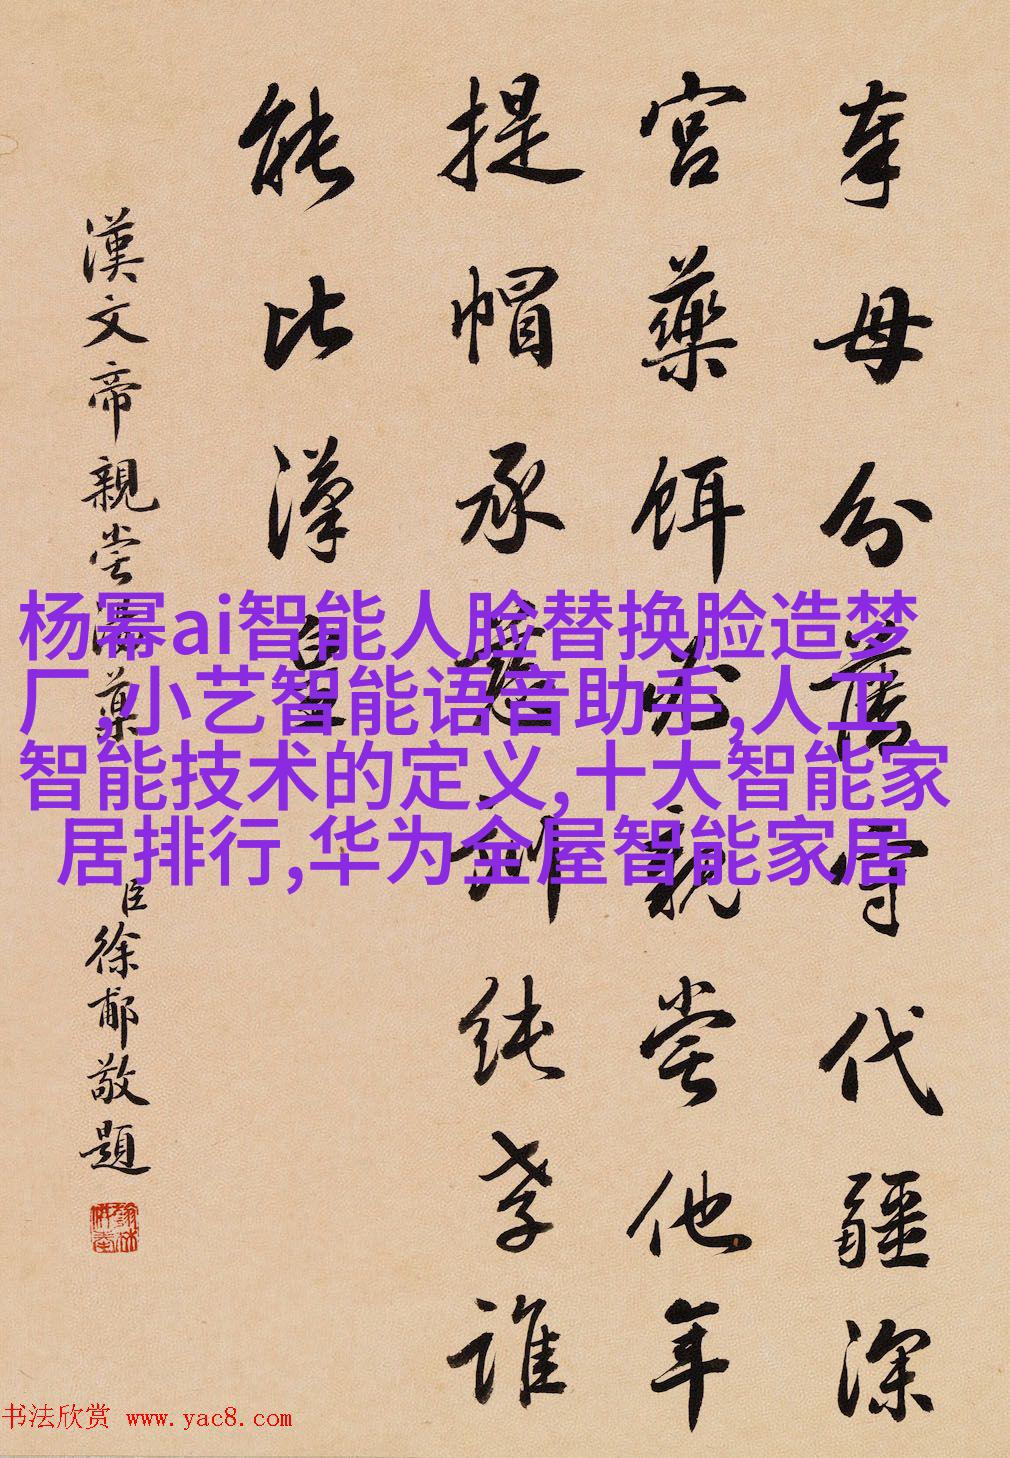 奉母分藩守代疆深
宮藥餌必親嘗他年
提帽承慈訓純孝誰
能比漢皇
漢文帝親嘗湯藥
臣徐郙敬題
杨幂ai智能人脸替换脸造梦
厂,小艺智能语音助手,人工
智能技术的定义,十大智能家
居排行,华为全屋智能家居
书法欣赏 www.yac8.com